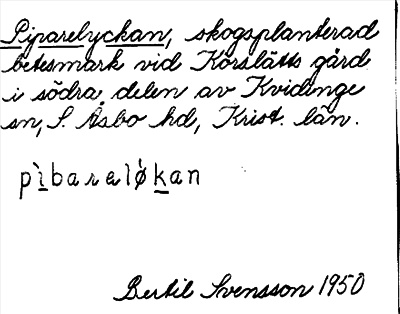 Piparelyckan, skogsplanterad
betesmark vid Korslätts gård
i södra delen av Kvidinge
sn, S. Åsbo hd, Krist. län.
pìbaralǿkan
Bertil Svensson 1950